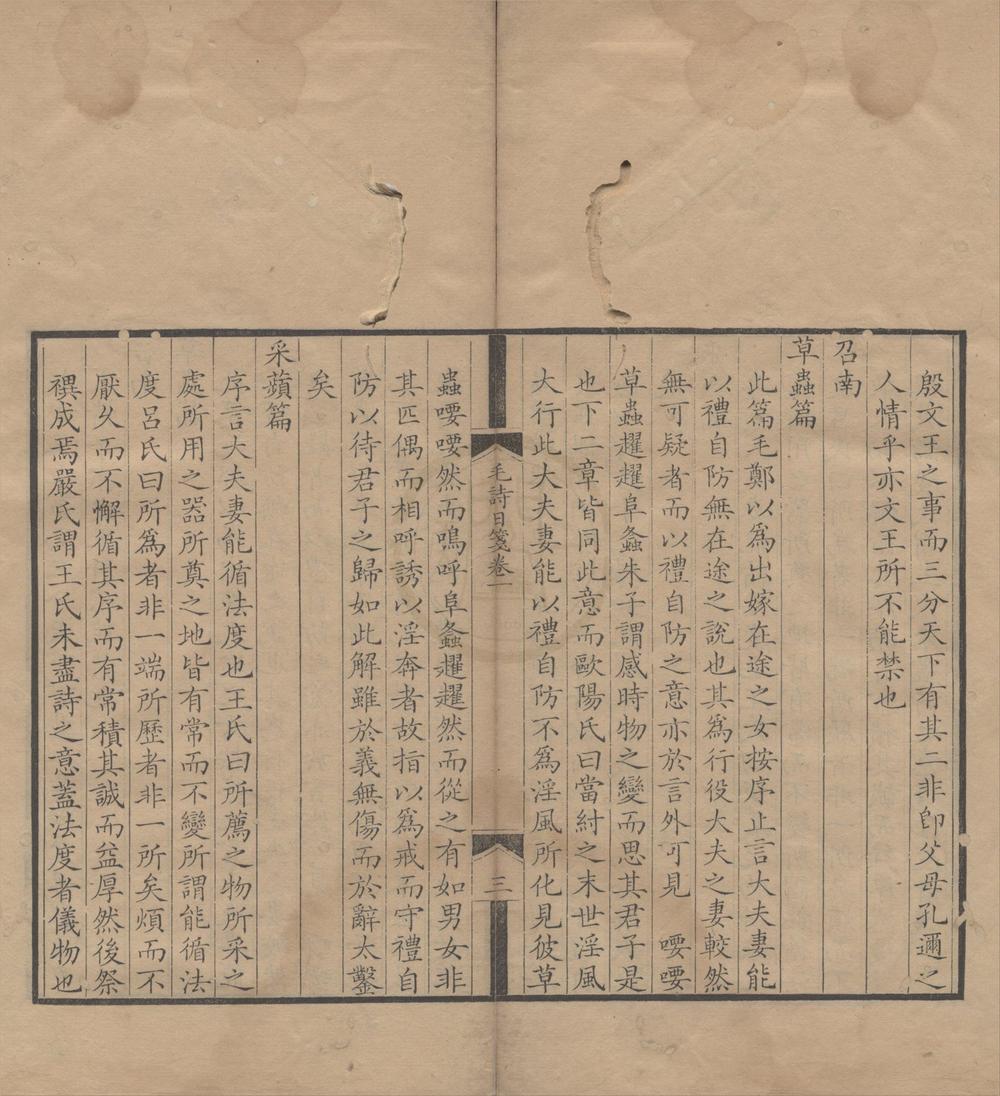 殷文王之事而三分天下有其二非卽父母孔邇之
人情乎亦文王所不能禁也
召南
草蟲篇
此篇毛鄭以爲出嫁在途之女按序止言大夫妻能
以禮自防無在途之說也其爲行役大夫之妻較然
無可疑者而以禮自防之意亦於言外可見　喓喓
草蟲趯趯阜螽朱子謂感時物之變而思其君子是
也下二章皆同此意而歐陽氏曰當紂之末世淫風
大行此大夫妻能以禮自防不爲淫風所化見彼草
毛詩日箋卷一
三
蟲喓喓然而鳴呼阜螽趯趯然而從之有如男女非
其匹偶而相呼誘以淫奔者故指以爲戒而守禮自
防以待君子之歸如此解雖於義無傷而於辭太鑿
矣
采蘋篇
序言大夫妻能循法度也王氏曰所薦之物所采之
處所用之器所奠之地皆有常而不變所謂能循法
度呂氏曰所爲者非一端所歷者非一所矣煩而不
厭久而不懈循其序而有常積其誠而益厚然後祭
禩成焉嚴氏謂王氏未盡詩之意蓋法度者儀物也